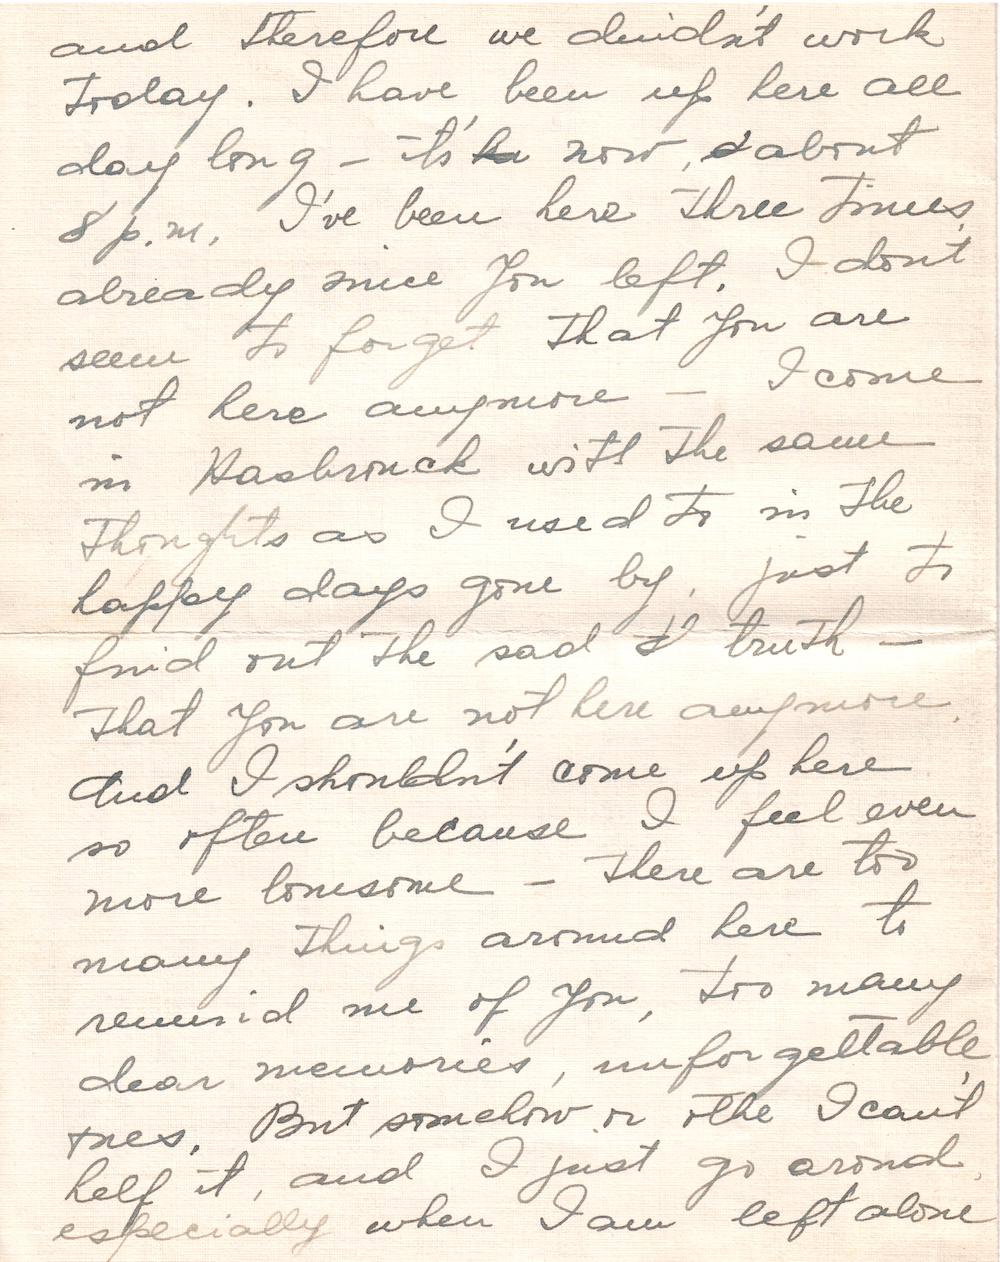 and therefore we dinidn't work
today. I have been up here all
day long - it's now, about
8 p.m. I've been here three times
already since You left. I don't
seem to forget that You are
not here anymore - I come
in Hasbrouck with the same
thoughts as I used to in the
happy days gone by, just to
find out the sad truth -
that You are not here anymore.
And I shouldn't come up here
so often because I feel even
more lonesome - there are too
many things around here to
remind me of You, too many
dear memories, unforgettable
ones. But somehow or othe I can't
help it, and I just go arond,
especially when I am left alone